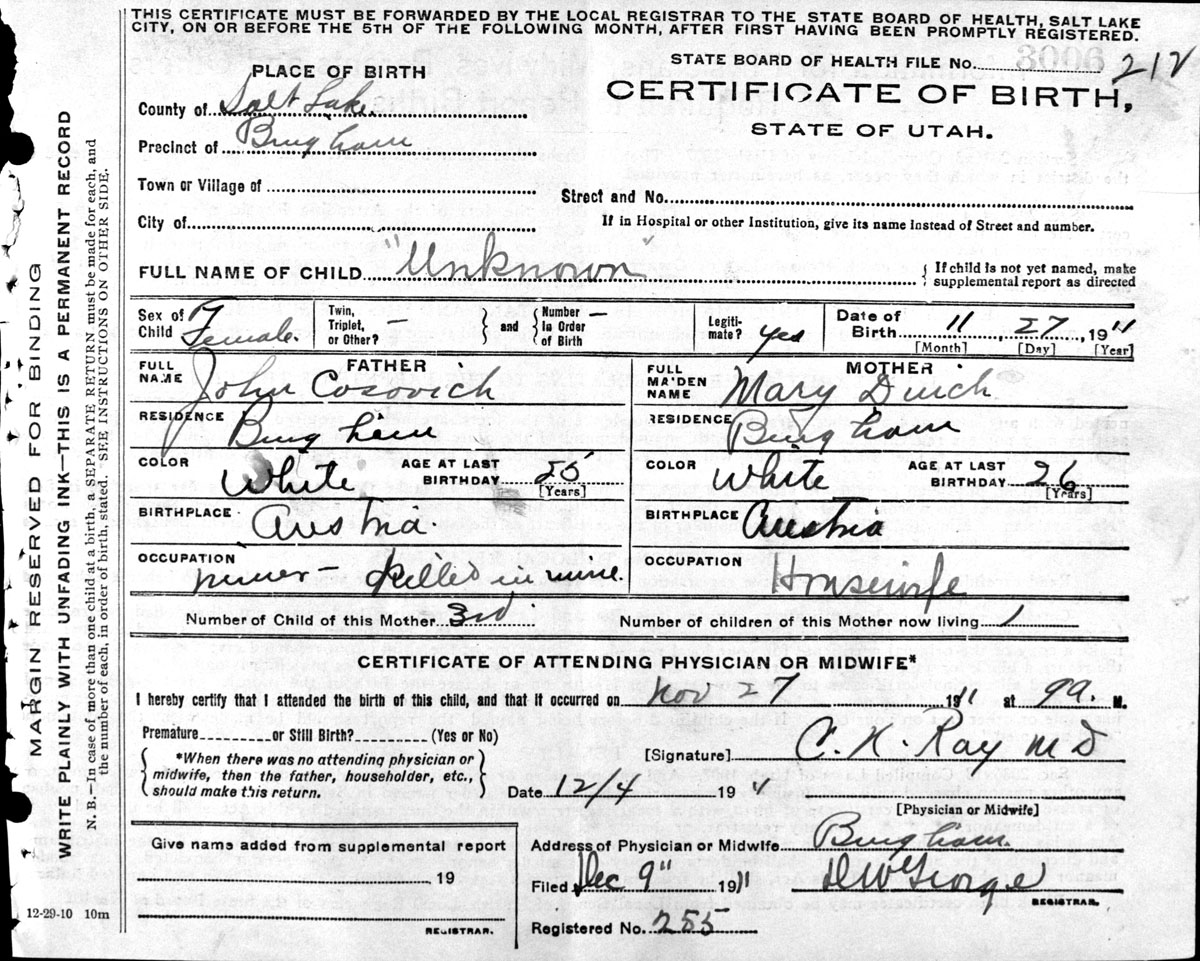 THIS CERTIFICATE MUST BE FORWARDED BY THE LOCAL REGISTRAR TO THE STATE BOARD OF HEALTH, SALT LAKE
CITY, ON OR BEFORE THE 5TH OF THE FOLLOWING MONTH, AFTER FIRST HAVING BEEN PROMPTLY REGISTERED.
STATE BOARD OF HEALTH FILE No. 212
CERTIFICATE OF BIRTH,
STATE OF UTAH.
PLACE OF BIRTH
County of Salt Lake
Precinct of Bingham
Town or Village of
Street and No.
City of
If in Hospital or other Institution, give its name instead of Street and number.
FULL NAME OF CHILD "Unknown"
If child is not yet named, make
supplemental report as directed
Sex of Child Female
Twin, Triplet, or Other? —
and
Number In Order of Birth —
Legiti-mate? Yes
Date of Birth 11, 27, 1911
[Month] [Day] [Year]
FATHER
FULL NAME John Cosovich
RESIDENCE Bingham
COLOR White
AGE AT LAST BIRTHDAY 25
[Years]
BIRTHPLACE Austria
OCCUPATION miner - killed in mine.
MOTHER
FULL MAIDEN NAME Mary
RESIDENCE Bingham
COLOR White
AGE AT LAST BIRTHDAY 26
[Years]
BIRTHPLACE Austria
OCCUPATION Housewife
Number of Child of this Mother 3rd
Number of children of this Mother now living 1
CERTIFICATE OF ATTENDING PHYSICIAN OR MIDWIFE*
I hereby certify that I attended the birth of this child, and that it occurred on Nov 27 1911 at 9 a. M.
Premature or Still Birth? (Yes or No)
*When there was no attending physician or
midwife, then the father, householder, etc.,
should make this return.
[Signature] C. N. Ray MD
Date 12/4 19
[Physician or Midwife]
Give name added from supplemental report
19
REGISTRAR.
Address of Physician or Midwife Bingham.
Filed Dec 9" 1911
D W George
REGISTRAR.
Registered No. 255
12-29-10 10m
MARGIN RESERVED FOR BINDING
WRITE PLAINLY WITH UNFADING INK—THIS IS A PERMANENT RECORD
N. B.—In case of more than one child at a birth, a SEPARATE RETURN must be made for each, and
the number of each, in order of birth, stated. "SEE INSTRUCTIONS ON OTHER SIDE.